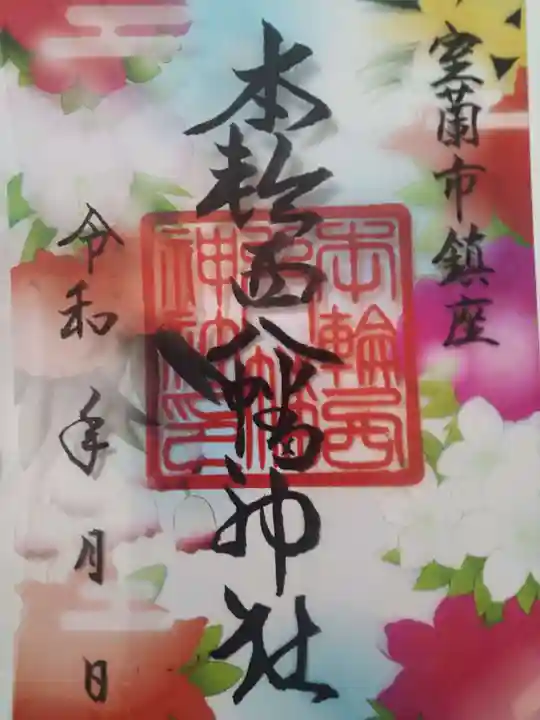 室蘭市鎮座
本輪西八幡神社
本輪西
八幡
神社印
令和 年 月 日